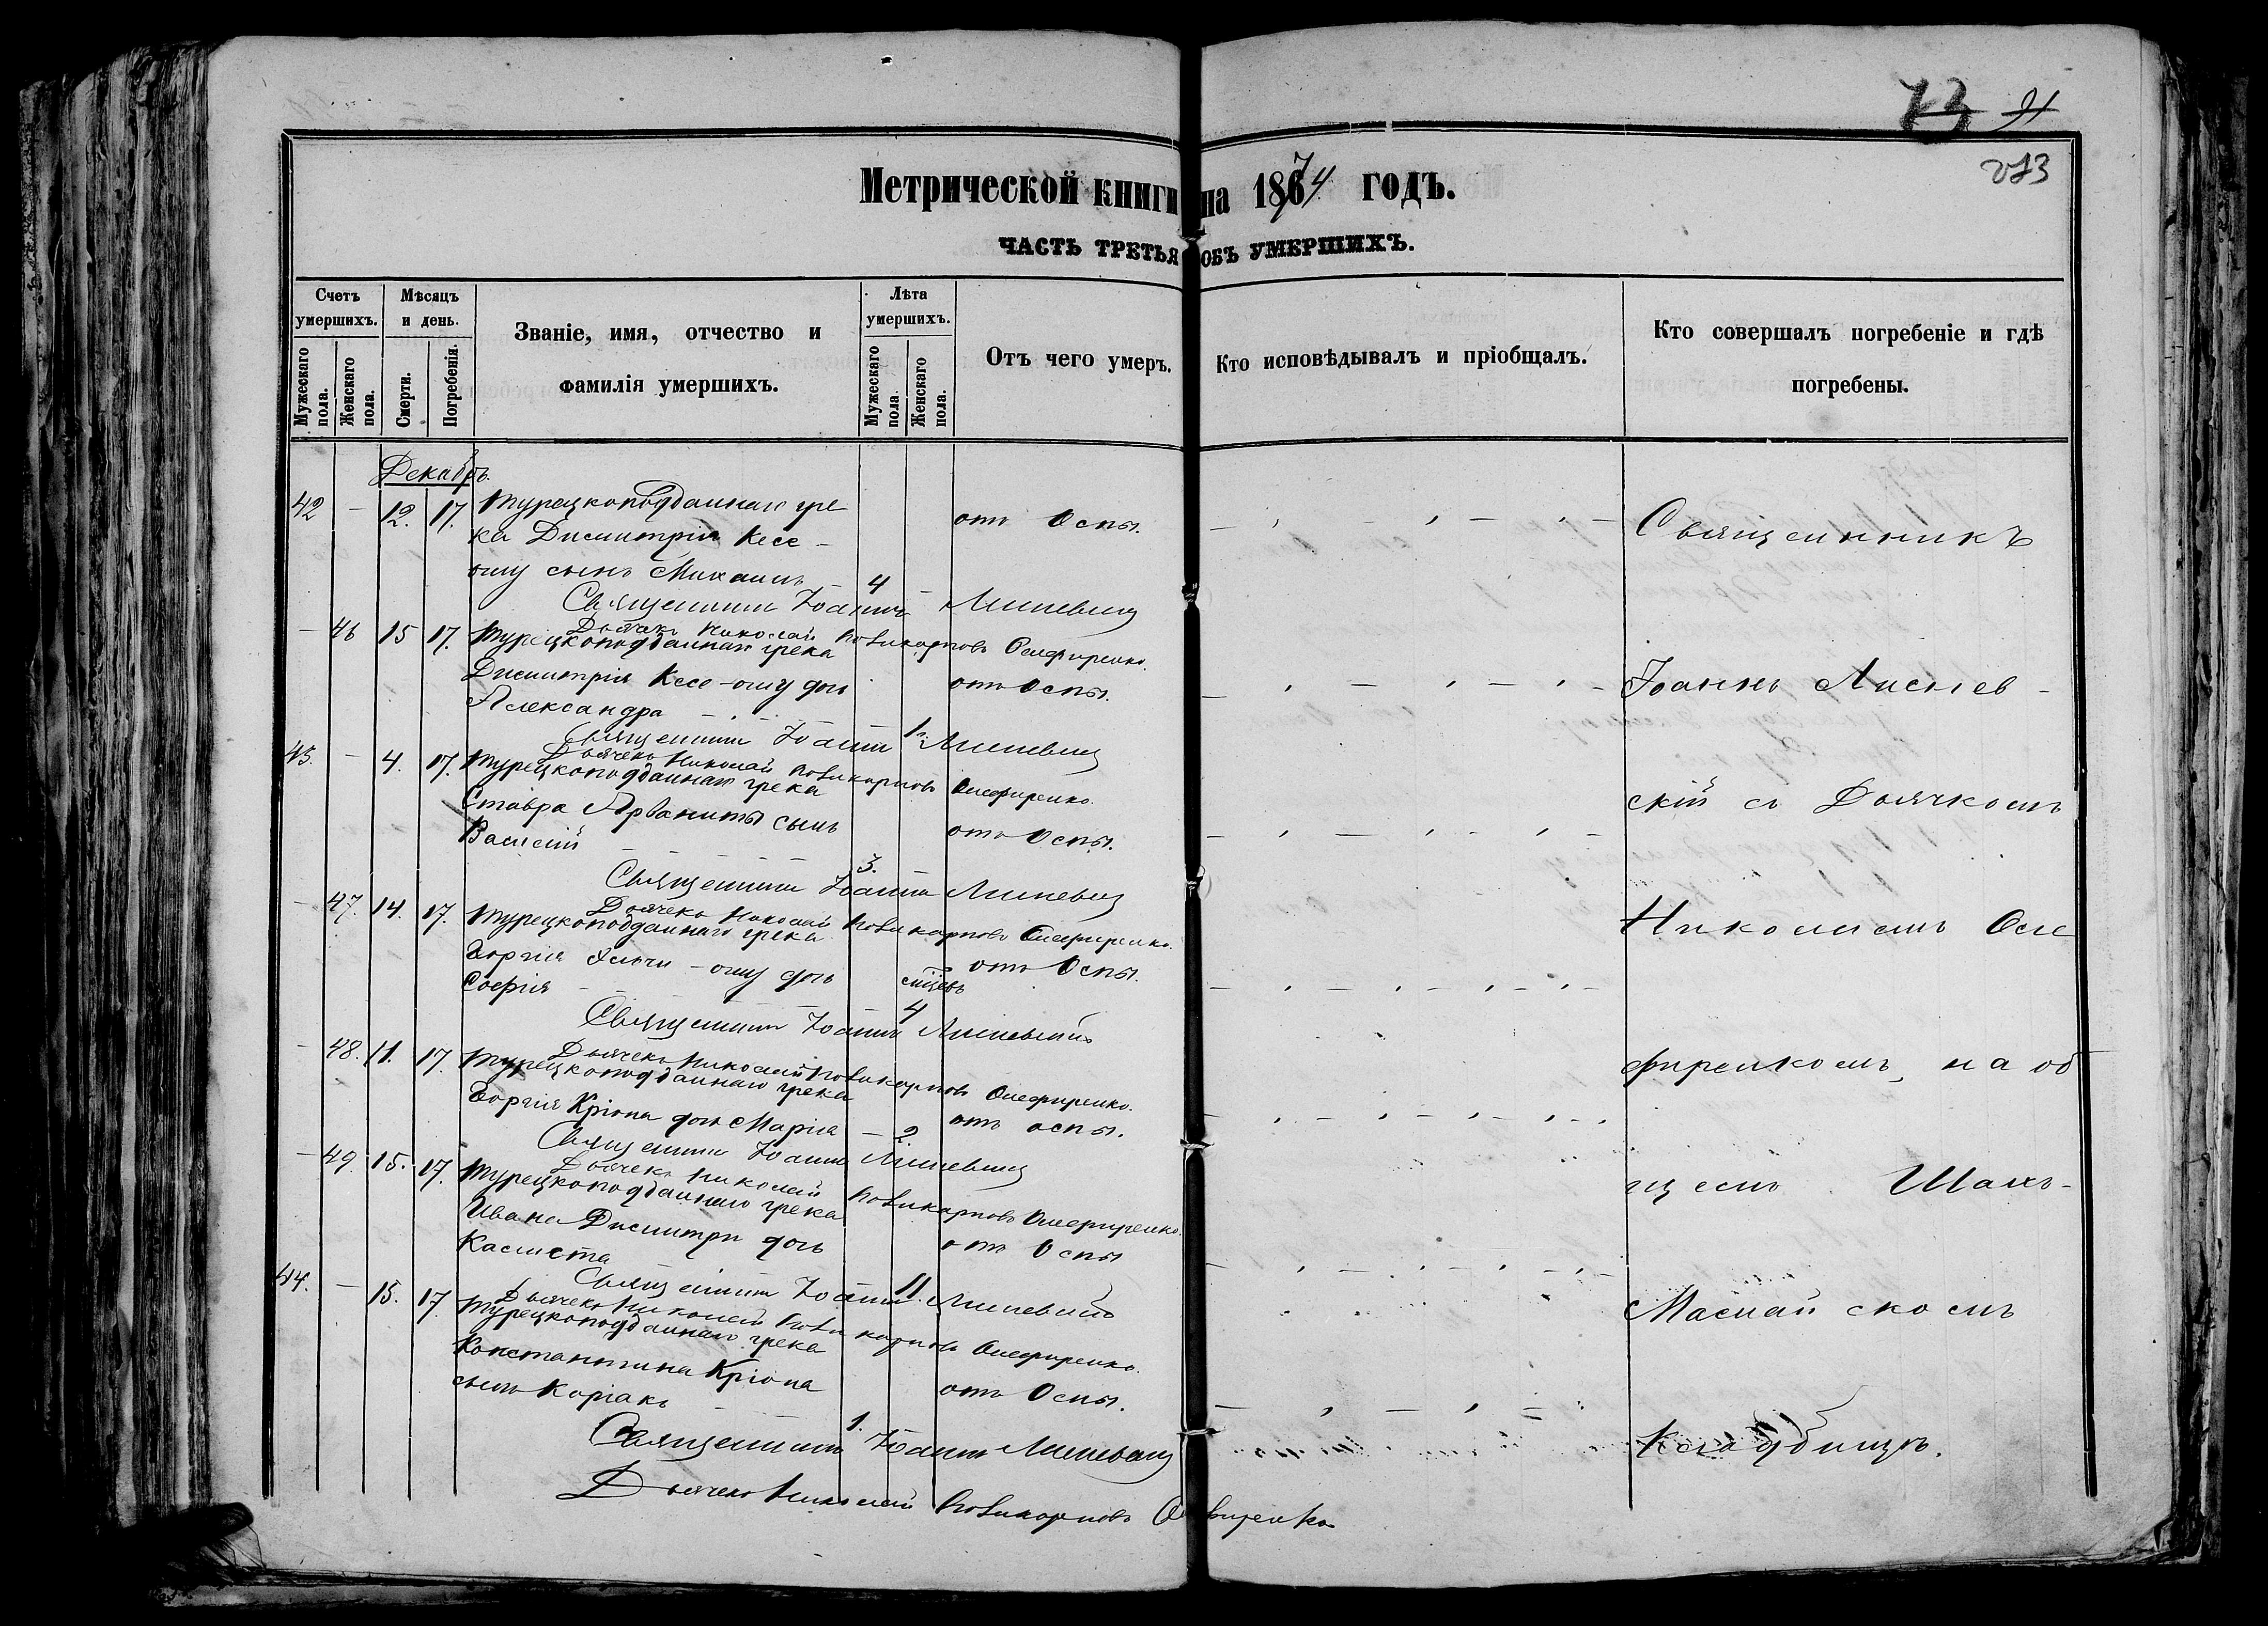 73 91
213
Метрической книги на 1874 годъ.
ЧАСТЬ ТРЕТЬЯ ОБЪ УМЕРШИХЪ.
Счетъ умершихъ.
Мужескаго пола.
Женскаго пола.
Мѣсяцъ и день.
Смерти.
Погребенія.
Званіе, имя, отчество и
фамилія умершихъ.
Лѣта умершихъ.
Мужескаго пола.
Женскаго пола.
Отъ чего умеръ.
Кто исповѣдывалъ и пріобщалъ.
Кто совершалъ погребеніе и гдѣ
погребены.
Декабрь.
42 - 12. 17. Турецкоподданнаго гре
ка Димитрія Кесе- отъ Оспы.
оглу сынъ Михаилъ - 4
Священникъ Іоаннъ
Дьячекъ Николай Поликарповъ Олефиренко.
- 46 15 17. Турецкоподданнаго грека
Димитрія Кесе-оглу дочь отъ Оспы.
Александра - 1.
Священникъ Іоаннъ
Дьячекъ Николай Поликарповъ Олефиренко.
43. - 4. 17. Турецкоподданнаго грека
Ставра Арваниты сынъ отъ Оспы.
Василій 3.
Священникъ Іоаннъ
Дьячекъ Николай Поликарповъ Олефиренко.
- 47. 14. 17. Турецкоподданнаго грека
Георгія -оглу дочь отъ Оспы.
Софія - мѣсцевъ 4
Священникъ Іоаннъ
Дьячекъ Николай Поликарповъ Олефиренко.
- 48. 11. 17. Турецкоподданнаго грека
Георгія Кріопа дочь Марія - 2. отъ оспы.
Священникъ Іоаннъ
Дьячекъ Николай Поликарповъ Олефиренко.
- 49. 15. 17. Турецкоподданнаго грека
Ивана Димитри дочь отъ Оспы
11.
Священникъ Іоаннъ
Дьячекъ Николай Поликарповъ Олефиренко.
44. - 15. 17. Турецкоподданнаго грека
Константина Кріопа отъ Оспы.
сынъ Коріакъ 1.
Священникъ Іоаннъ
Дьячекъ Николай Поликарповъ
Священникъ
Іоаннъ
скій съ Дьячкомъ
Николаемъ Оле
фиренкомъ, на об
щемъ
кладбищѣ.